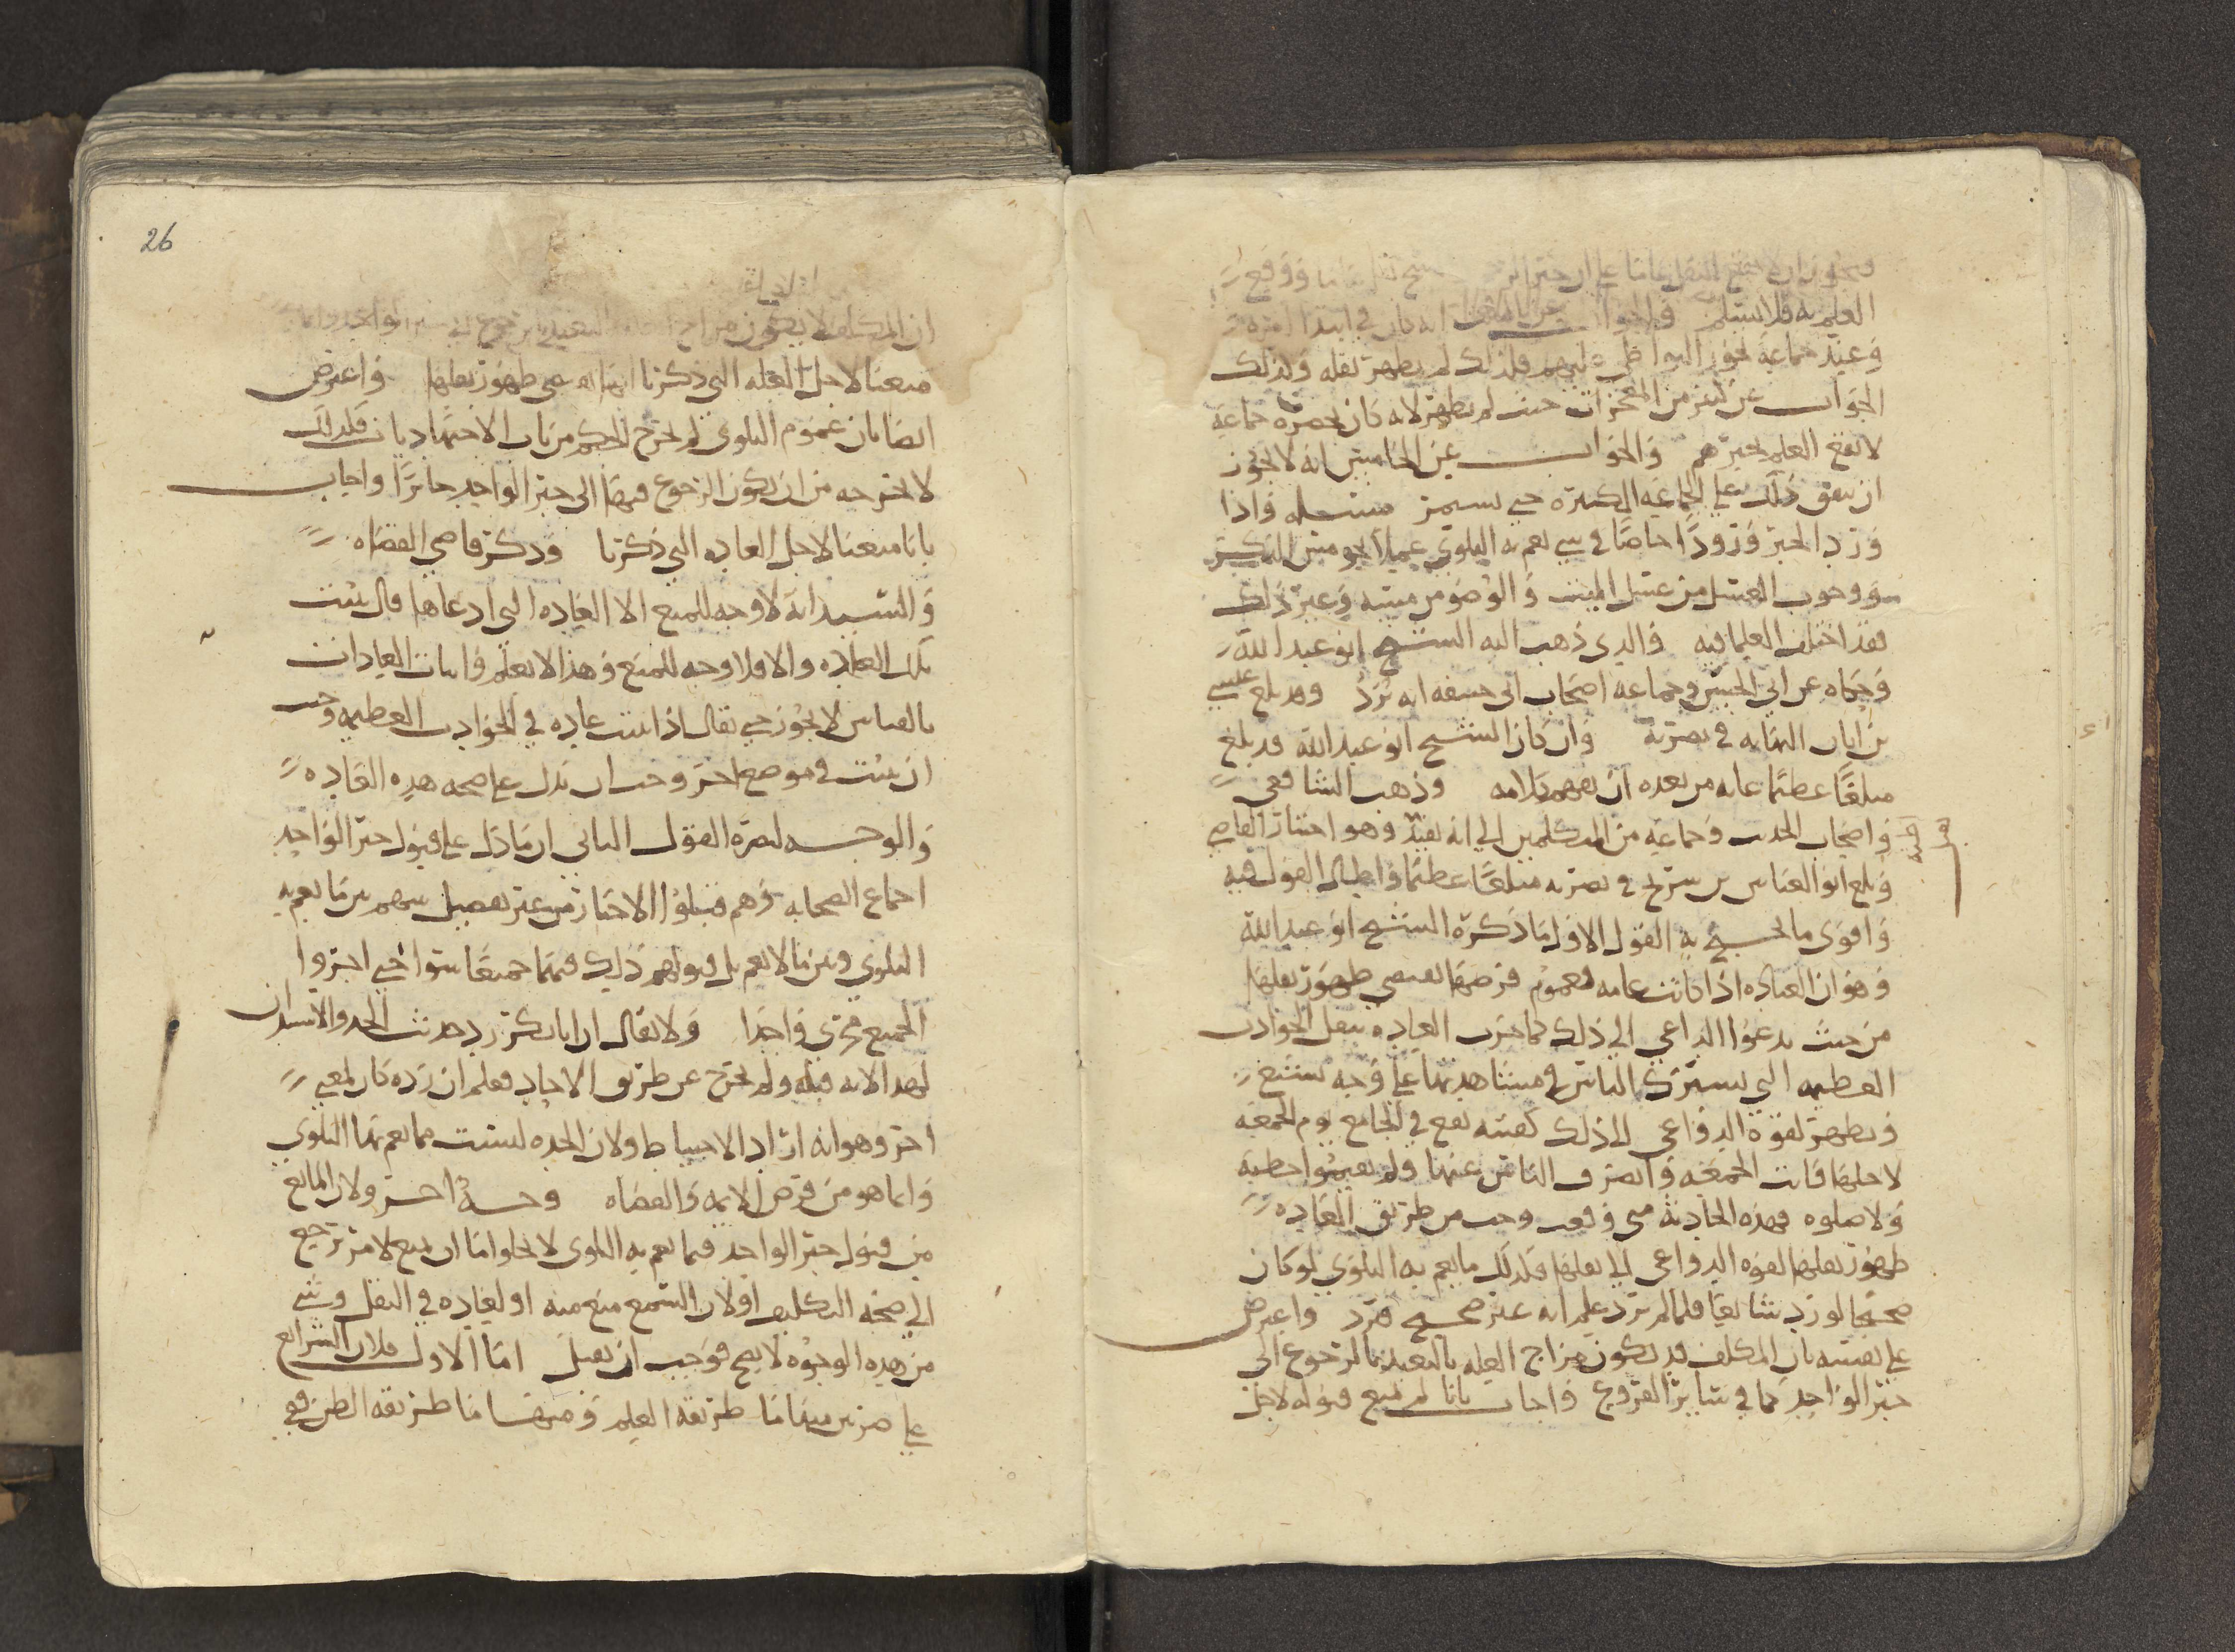 العلم به فلا يسلم
وعند جماعة فلذلك لم يظهر نقله وكذلك
الجواب عن كثير من المعجزات حيث لم يظهر لانه كان بحضرة جماعة
لا يقع العلم بخبرهم والجواب عن الخامس انه لا يجوز
ان يتفق ذلك على الجماعة الكثيرة حتى يستمر مسئلة واذا
ورد الخبر ورودا خاصا في شي تعم به البلوى عملا نحو مس الذكر
ووجوب الغسل من غسل الميت والوضو من مسه وغير ذلك
فقد اختلف العلما فيه والذي ذهب اليه الشيخ ابو عبد الله
وحكاه عن ابي الحسن وجماعة اصحاب ابي حنيفة انه يرد وقد بلغ عيسى
بن ابان النهاية في نصرته وان كان الشيخ ابو عبد الله قد بلغ
مبلغا عظيما غاية من بعده ان يفهم كلامه وذهب الشافعي
واصحاب الحديث وجماعة من المتكلمين الى انه يقبل وهو اختيار القاضي
وبلغ ابو العباس بن سريج في نصرته مبلغا عظيما واطال القول فيه
واقوى ما يحتج به القول الاول ما ذكره الشيخ ابو عبد الله
وهو ان العبادة اذا كانت عامة فعموم فرضها يقتضي ظهور نقلها
من حيث يدعوا الداعي الى ذلك كما جرت العادة بنقل الحوادث
العظيمة التي يشترك الناس في مشاهدتها على وجه يشيع
ويظهر لقوة الدواعي الى ذلك كفتنة تقع في الجامع يوم الجمعة
لاجلها فاتت الجمعة وانصرف الناس عنها ولم يقيموا خطبة
ولا صلوة فهذه الحادثة متى وقعت وجب من طريق العادة
ظهور نقلها لقوة الدواعي الى نقلها فكذلك ما تعم به البلوى لو كان
صحيحا لورد شائعا فلما لم يرد علم انه غير صحيح فرد واعترض
على نفسه بان المكلف قد يكون مزاح العلة بالتعبد بالرجوع الى
خبر الواحد كما في سائر الفروع واجاب بانا لم نمنع قبوله لاجل
26
ان المكلف لا يكون مزاح
منعنا لاجل العلة التي ذكرنا انها تقتضي ظهور نقلها واعترض
ايضا بان عموم البلوى لم يخرج الحكم من باب الاجتهاد بان فكذلك
لا يخرجه من ان يكون الرجوع فيها الى خبر الواحد جائزا واجاب
بانا منعنا لاجل العادة التي ذكرنا وذكر قاضي القضاة
والسيد انه لا وجه للمنع الا العادة التي ادعاها فان ثبتت
تلك العادة والا فلا وجه للمنع وهذا لا يعلم واثبات العادات
بالقياس لا يجوز حتى يقال اذا ثبت عادة في الحوادث العظيمة وجب
ان يثبت في موضع اخر وجب ان يدل على صحة هذه العادة
والوجه لنصرة القول الثاني ان ما دل على قبول خبر الواحد
اجماع الصحابة وهم قبلوا الاخبار من غير تفصيل منهم بين ما تعم به
البلوى وبين ما لا تعم بل قبولهم ذلك فيهما جميعا سوا حتى اجروا
الجميع مجرى واحدا ولا يقال ان ابا بكر رد حديث الجدة والاستيذان
لهذا لانه قبله ولم يخرج عن طريق الاحاد فعلم ان رده كان لمعنى
اخر وهو انه اراد الاحتياط ولان الجدة ليست مما تعم بها البلوى
وانما هو من فرض الائمة والقضاة وحجة اخر ولان المانع
من قبول خبر الواحد فيما تعم به البلوى لا يخلوا اما ان يمنع لامر يرجع
الى صحة التكليف او لان السمع منع منه او لعادة في النقل وشي
من هذه الوجوه لا يصح فوجب ان يقبل اما الاول فلان الشرائع
على ضربين منها ما طريقه العلم ومنها ما طريقه الظن ففي